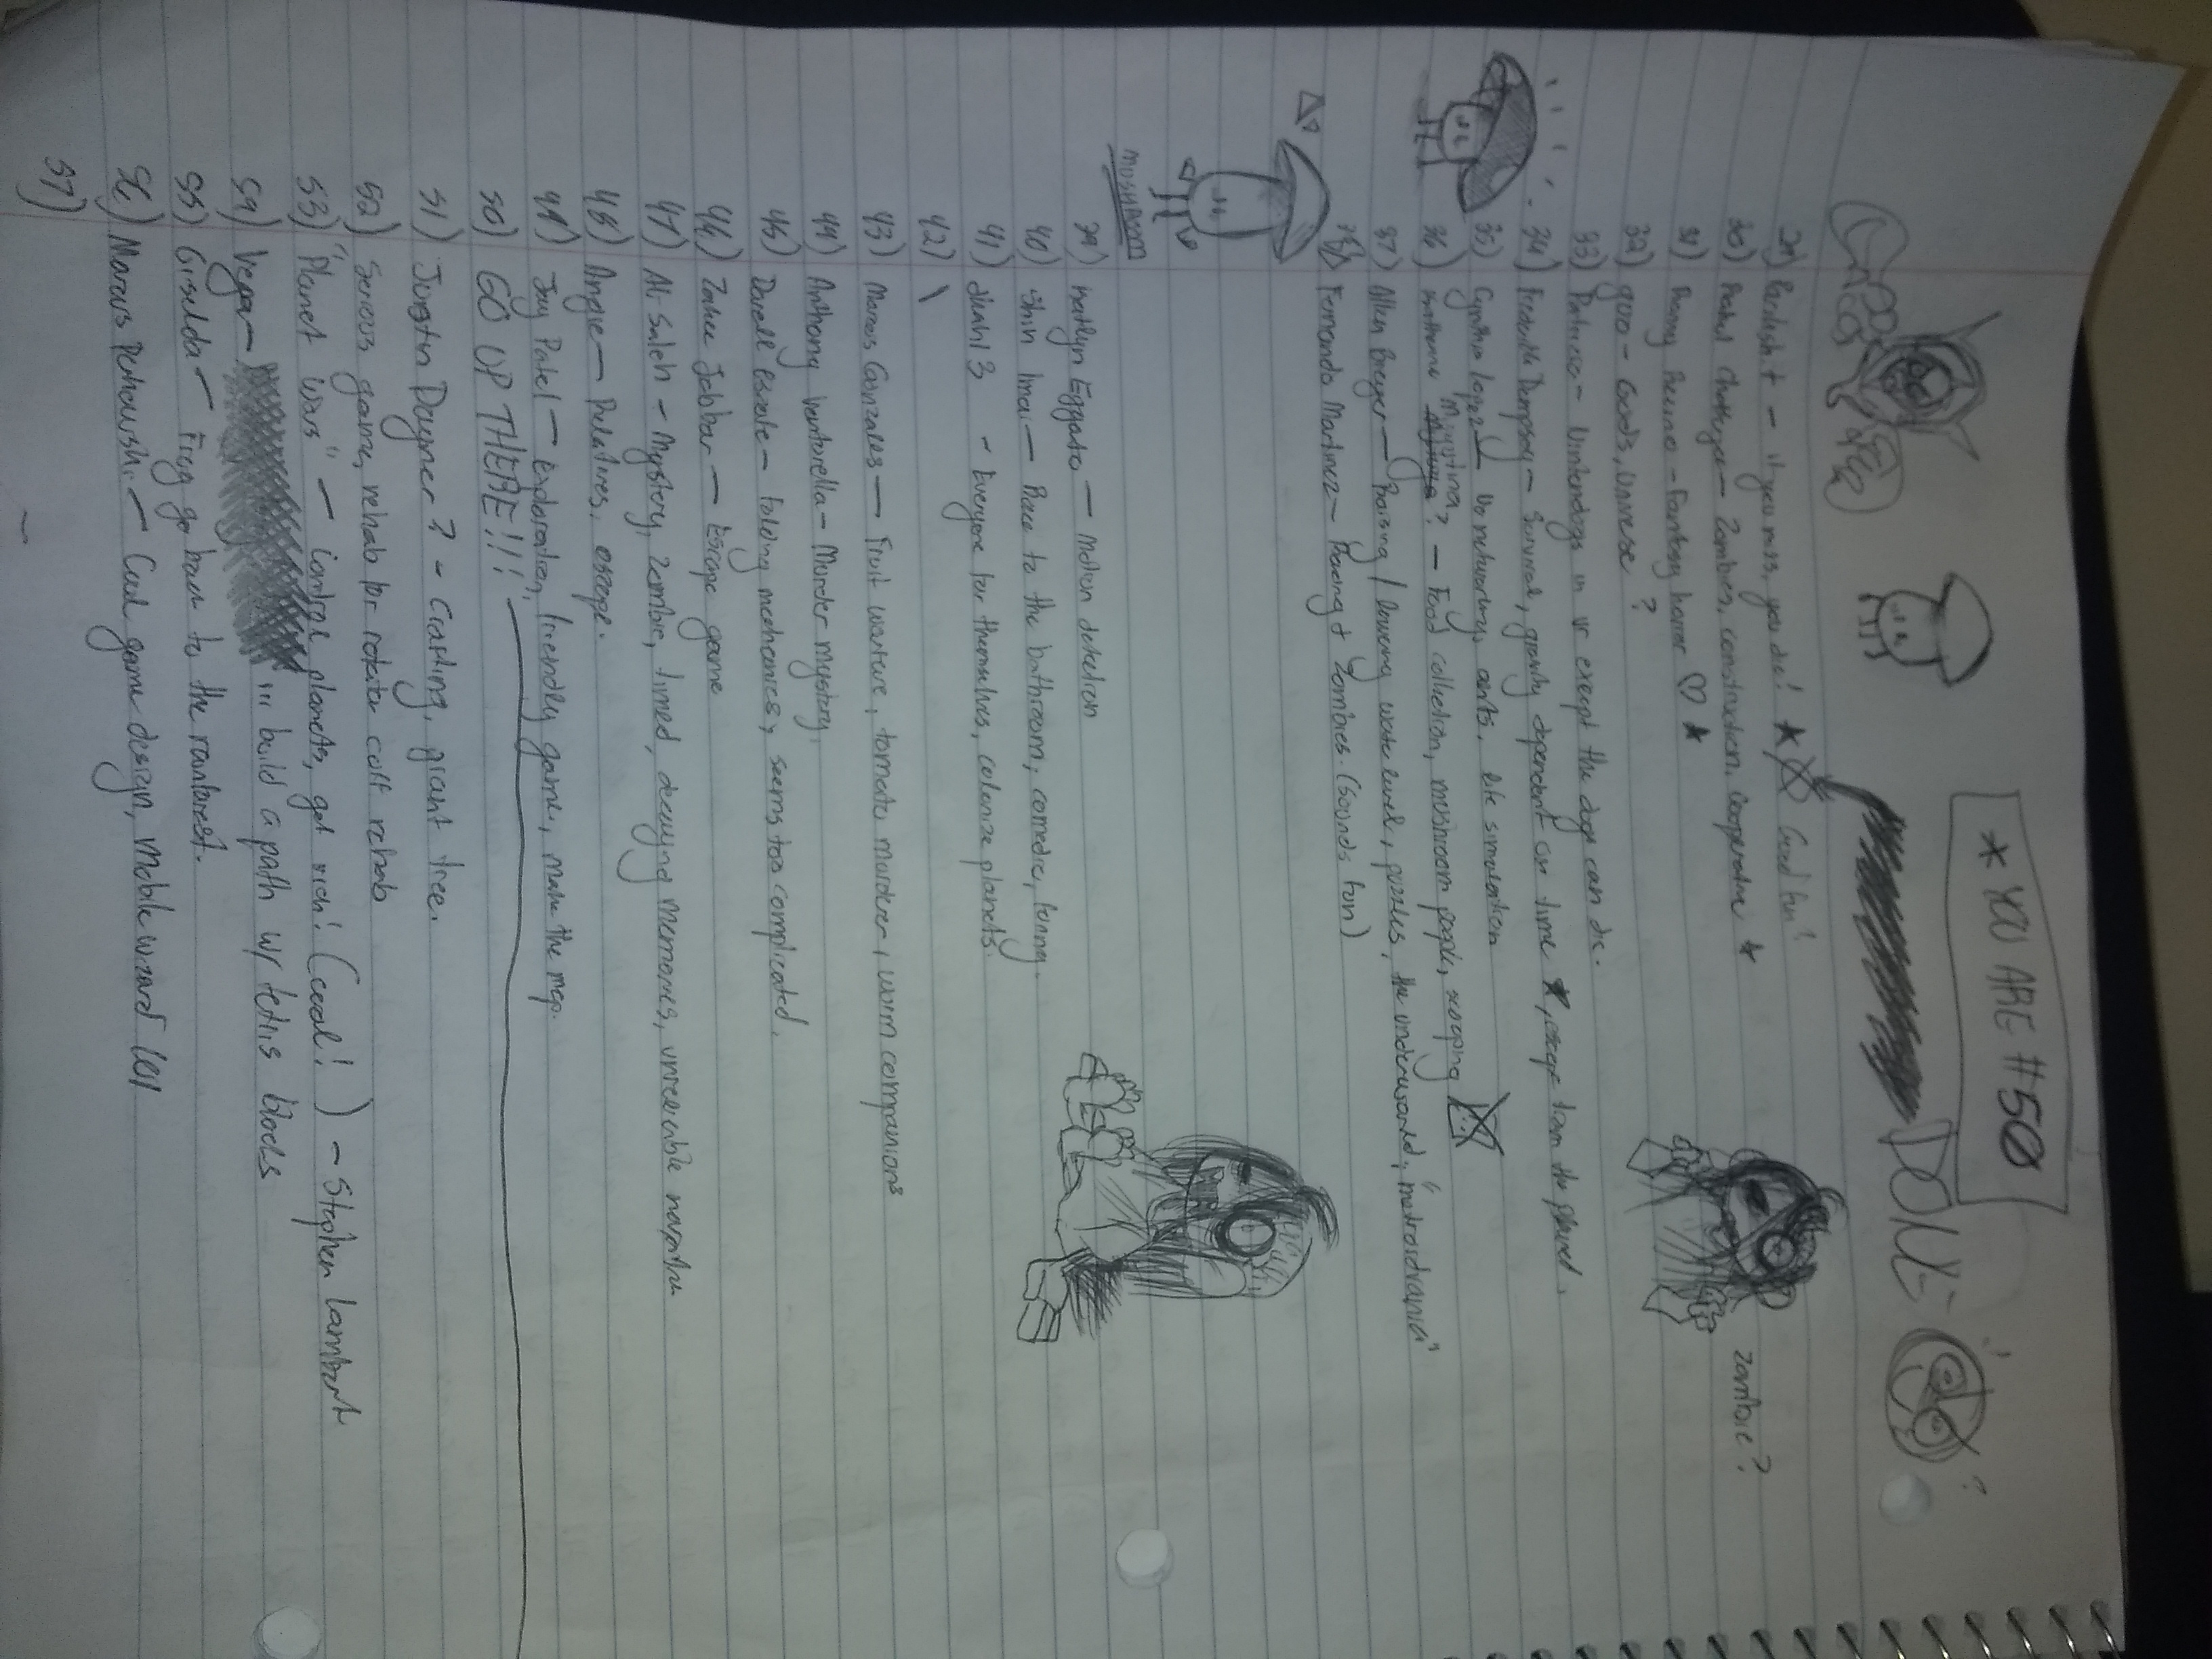 * YOU ARE #50
DONE
?
29) - if you miss, you die! ★ Good fun!
30) - zombies, construction, cooperative ★
zombie?
31) - Fantasy horror ♡ ★
32) - Gods, Universe ?
33) Patricio - Nintendogs in vr except the dogs can die.
34) - Survival, gravity dependent on time, escape from the planet.
35) Cynthia Lopez - life simulation
36) ? - Food collection, mushroom people, scraping
37) Allen Breyer - Raising / lowering water level, puzzles, the underworld, "metroidvania"
38) Fernando Martinez - Racing & zombies. (sounds fun)
MUSHROOM
39) Eggato - Motion detection
40) Shin Imai - Race to the bathroom, comedic, funny.
41) - Everyone for themselves, colonize planets.
42) \
43) Marcos Gonzales - Fruit warfare, tomato murderer, worm companions
44) Anthony Venturella - Murder mystery.
45) - folding mechanics, seems too complicated.
46) Jabbar - Escape game
47) Ali Saleh - Mystery, zombie, timed, decaying memories, unreliable narrative
48) Angie - Relatives, escape.
49) Jay Patel - exploration, friendly game, make the map.
50) GO UP THERE!!!
51) Justin Daymer? - Crafting, giant tree.
52) Serious game, rehab for rotator cuff rehab
53) "Planet Wars" - control planets, get rich! (cool!) - Stephen Lambert
54) Vegar - ... build a path w/ tetris blocks
55) Griselda - Frog go back to the rainforest.
56) Marcus - Cool game design, mobile wizard
57)